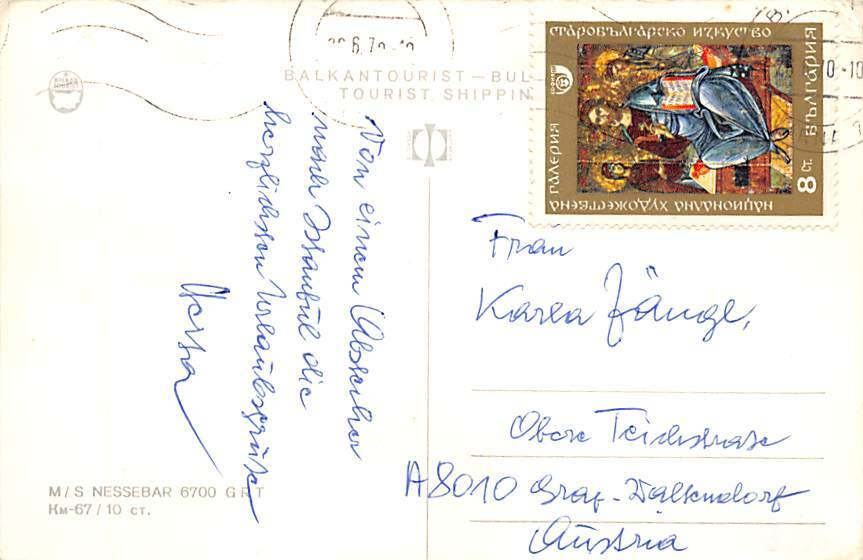 BALKANTOURIST – BUL
TOURIST SHIPPIN
Von einem Abstecher
nach Istanbul die
herzlichsten Urlaubsgrüße
Herta
M/S NESSEBAR 6700 GRT
Км-67 / 10 ст.
СТАРОБЪЛГАРСКО ИЗКУСТВО
НАЦИОНАЛНА ХУДОЖЕСТВЕНА
ГАЛЕРИЯ
8 СТ. БЪЛГАРИЯ
Frau
Karla Zängl,
Obere Teichstrasse
A 8010 Graz-Waltendorf
Austria